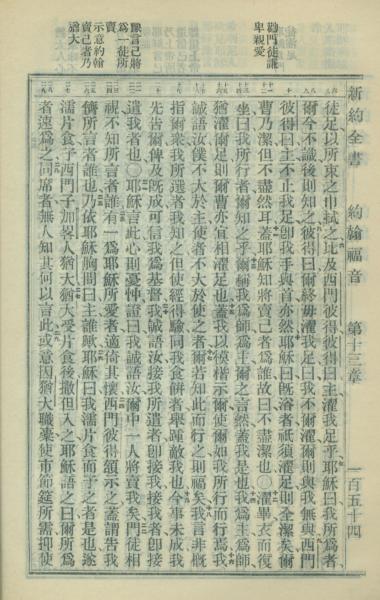 新約全書 約翰福音 第十三章 一百五十四
勸門徒謙
卑親愛
豫言己將
爲一徒所
賣
示意約翰
賣己者乃
猶大
徒足以所束之巾拭之比及西門彼得彼得曰主濯我足乎耶穌曰我所爲者
爾今不識後則知之彼得曰爾終毋濯我足曰我不爾濯爾則與我無與西門
彼得曰主不止我足卽我手與首亦然耶穌曰旣浴者祇須濯足則全潔矣爾
曹乃潔但不盡然耳蓋耶穌知將賣己者爲誰故曰不盡潔也〇濯畢衣而復
坐曰我所行者爾知之乎爾稱我爲師爲主爾之言然蓋我是也我爲主爲師
猶濯爾足爾曹亦宜相濯足也蓋我以模楷示爾使爾如我所行而行焉我
誠語汝僕不大於主使者不大於使之者爾若知此而行之則福矣我言非概
指爾衆我所選者我知之但使經得驗同我食餅者舉踵敵我也今事未成我
先告爾俾及旣成可信我爲基督我誠語汝接我所遣者卽接我接我者卽接
遣我者也〇耶穌言此心則憂忡證曰我誠語汝爾中一人將賣我矣門徒相
視不知所言者誰有一爲耶穌所愛者適倚其懷西門彼得頷示之蓋請告我
儕所言者誰也乃依耶穌胸間曰主誰歟耶穌曰我濡片食而予之者是也遂
濡片食予西門子加畧人猶大猶大受片食後撒但入之耶穌語之曰爾所爲
者速爲之同席者無人知其何以言此或意因猶大職橐使市節筵所需抑使